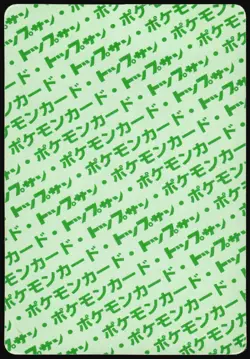 トップサン・
ポケモンカード・
トップサン・ポケモン
ポケモンカード・トップサン
トップサン・ポケモンカード
ポケモンカード・トップサン・
トップサン・ポケモンカード・
ポケモンカード・トップサン・
トップサン・ポケモンカード・
ポケモンカード・トップサン・
トップサン・ポケモンカード・
ポケモンカード・トップサン・
トップサン・ポケモンカード・
ポケモンカード・トップサン
ポケモンカード